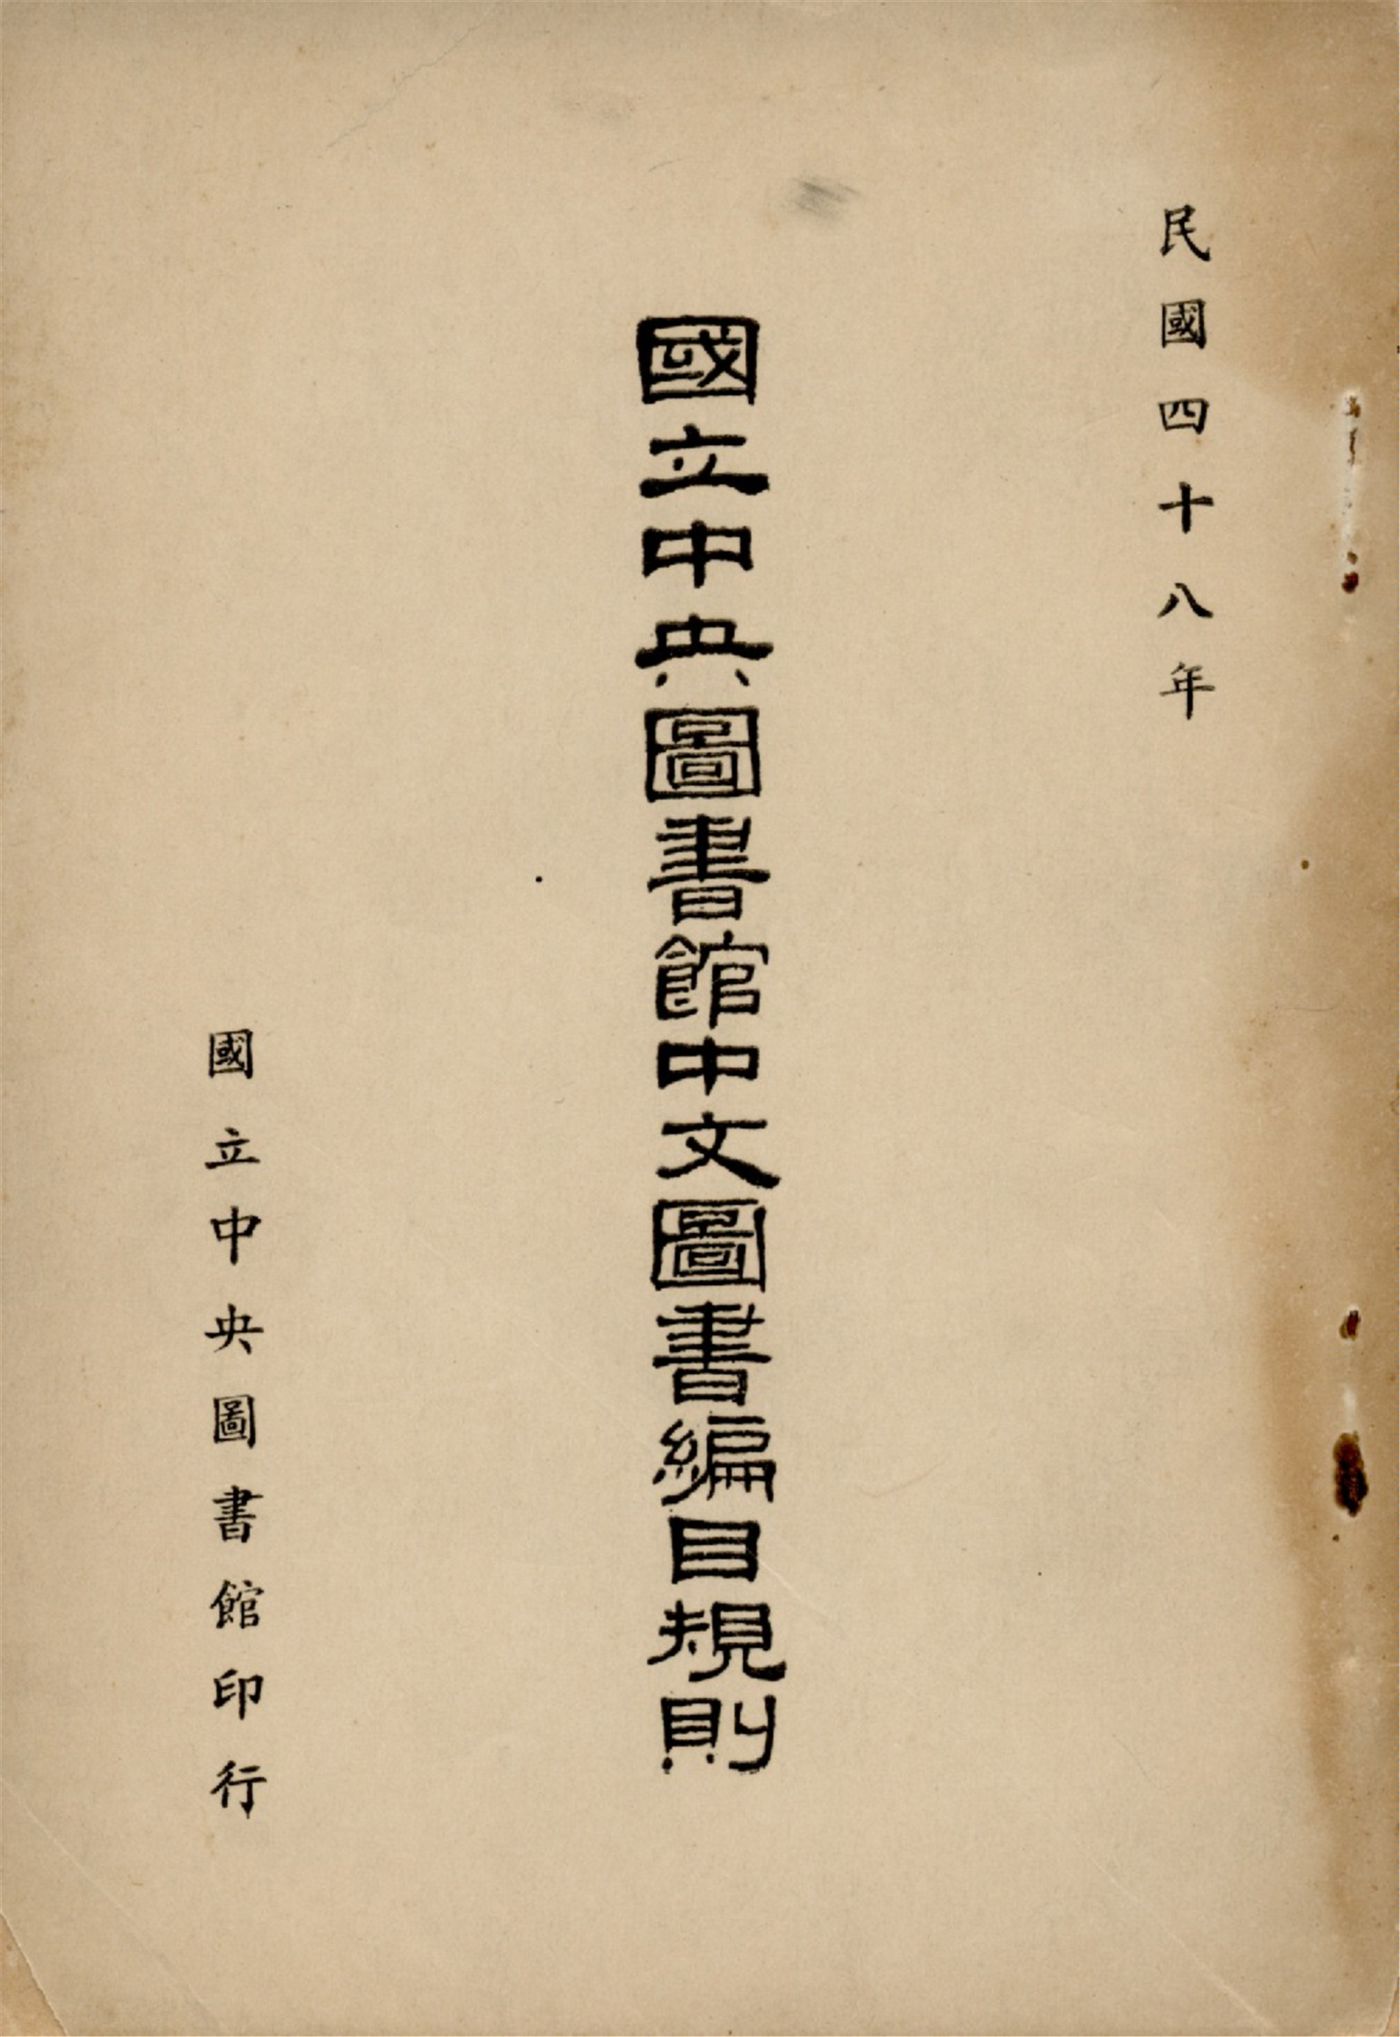 民國四十八年
國立中央圖書館中文圖書編目規則
國立中央圖書館印行